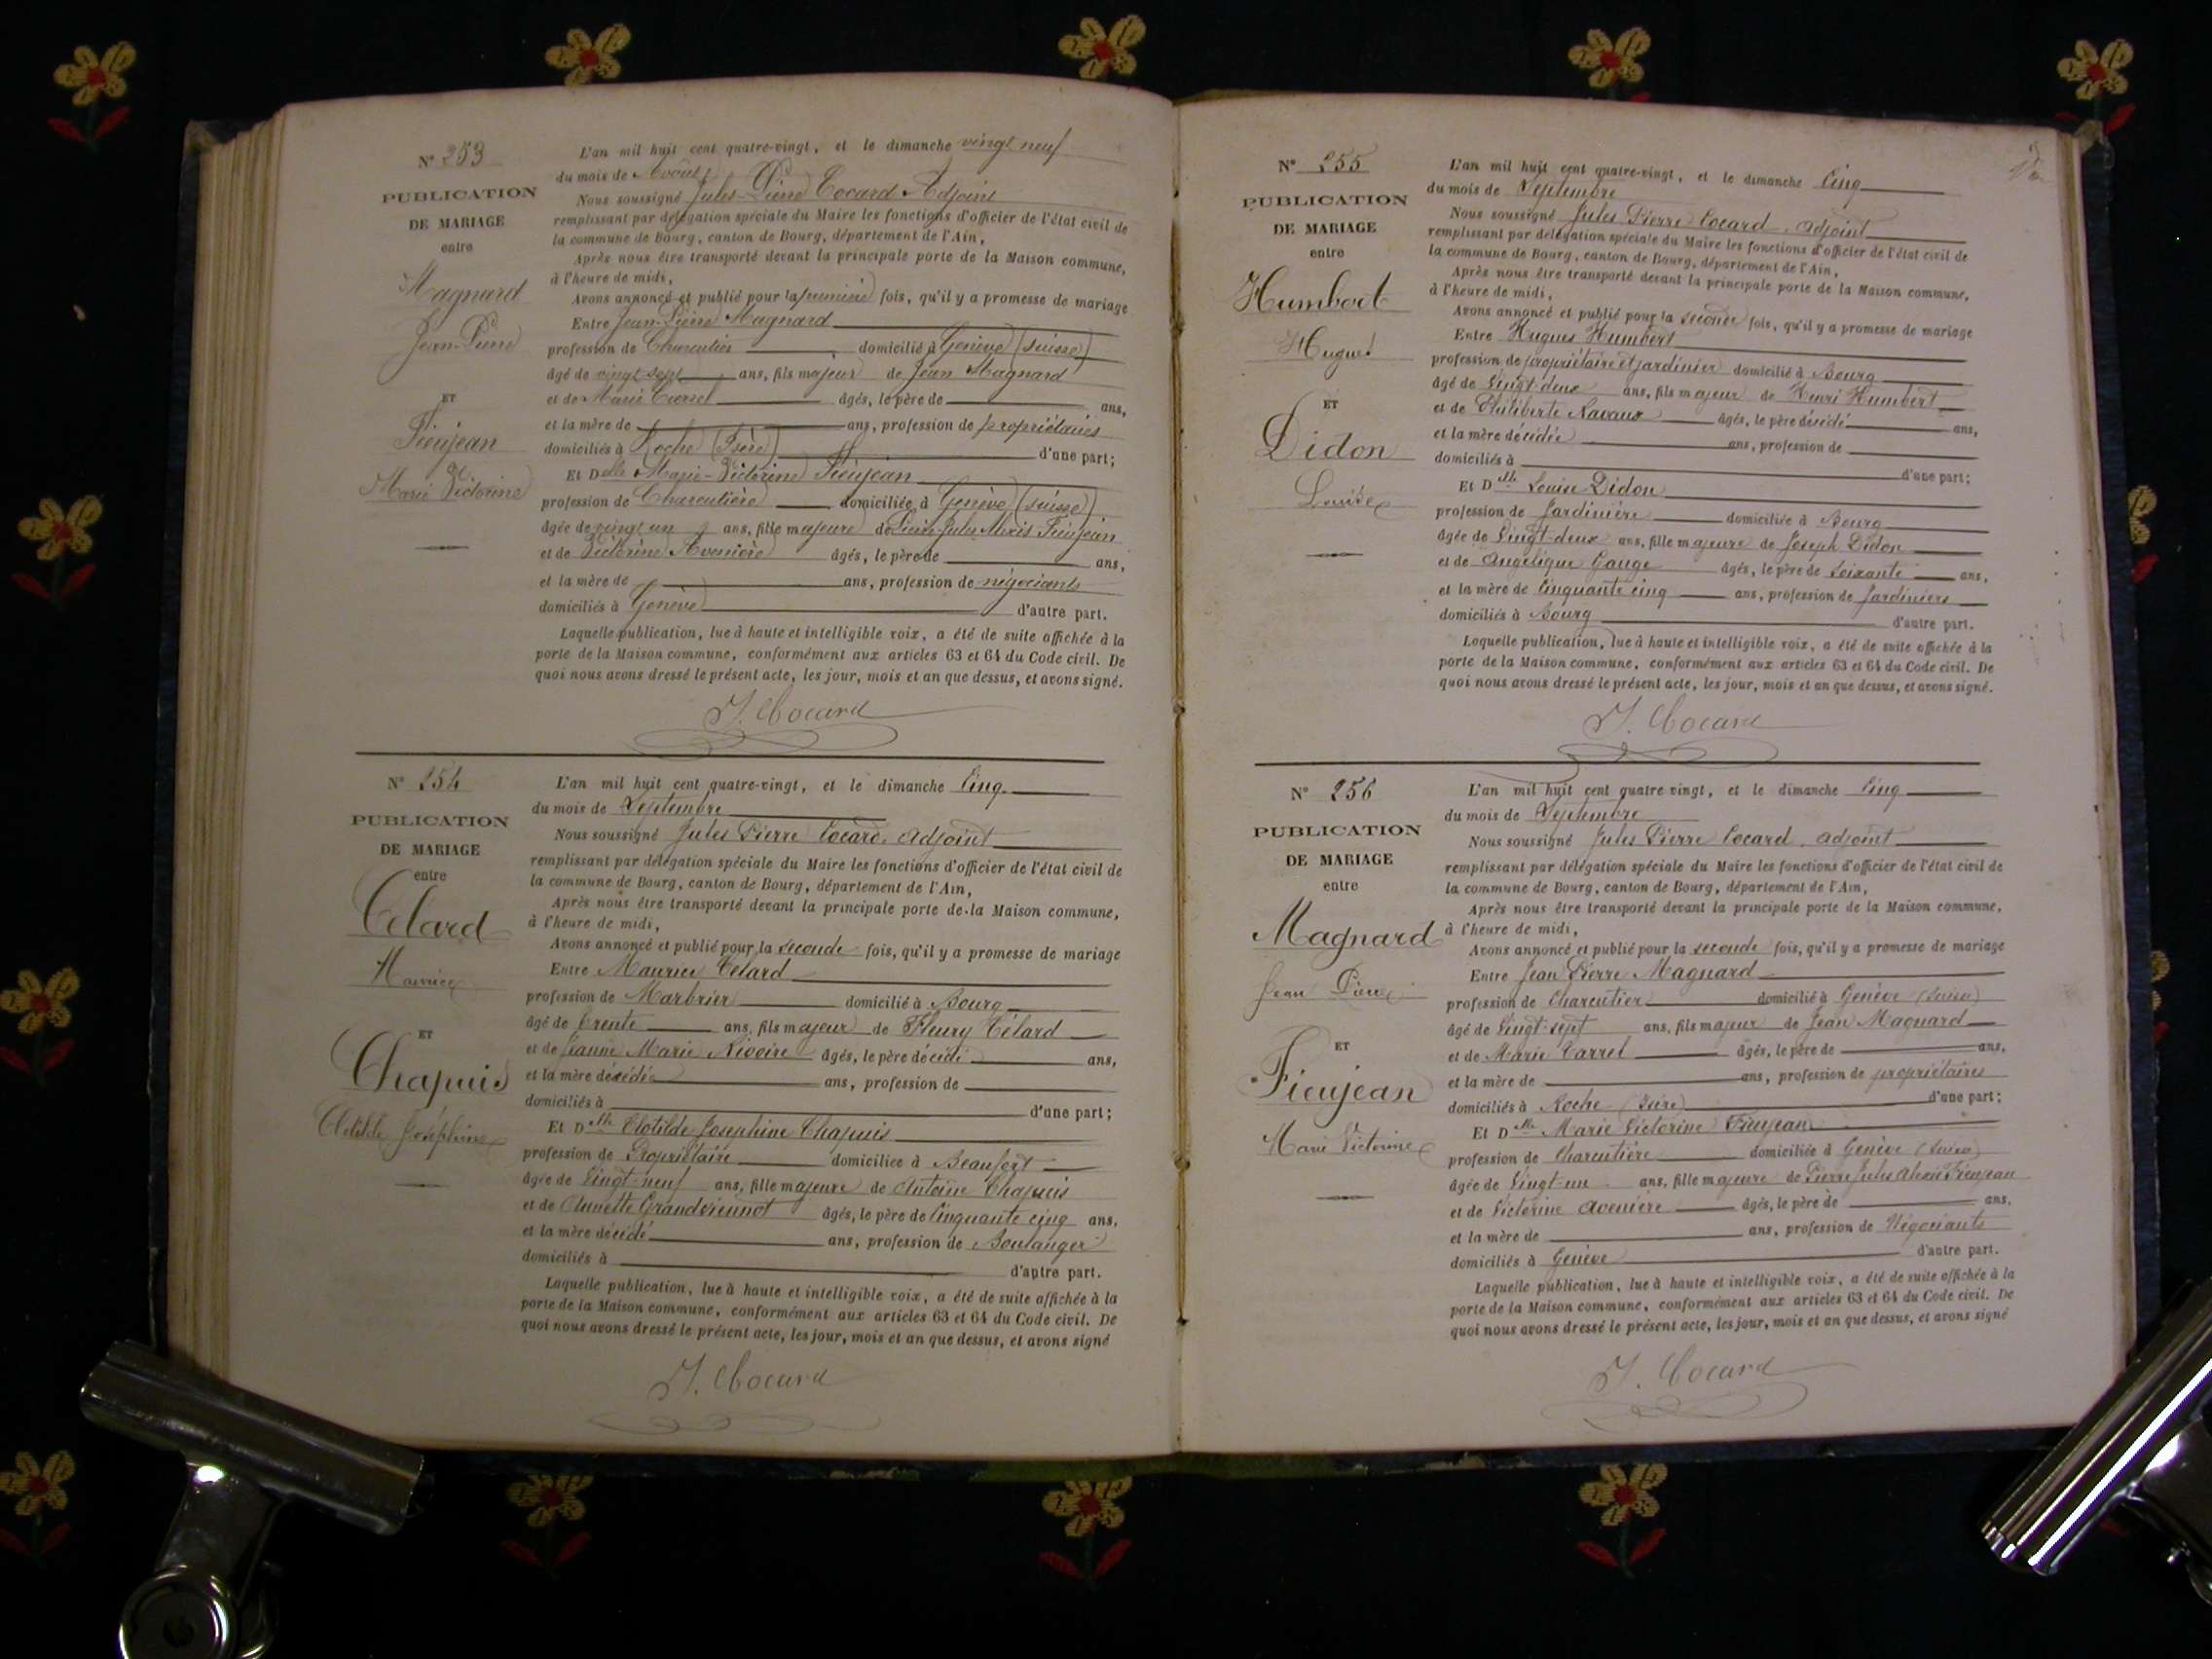 N° 253
PUBLICATION
DE MARIAGE
entre
Magnard
Jean-Pierre
ET
Fieujean
Marie Victorine
L'an mil huit cent quatre-vingt, et le dimanche vingt neuf
du mois de Août
Nous soussigné Jules-Pierre Cocard Adjoint
remplissant par délégation spéciale du Maire les fonctions d'officier de l'état civil de
la commune de Bourg, canton de Bourg, département de l'Ain,
Après nous être transporté devant la principale porte de la Maison commune,
à l'heure de midi,
Avons annoncé et publié pour la première fois, qu'il y a promesse de mariage
Entre Jean-Pierre Magnard
profession de Charcutier domicilié à Genève (Suisse)
âgé de vingt sept ans, fils majeur de Jean Magnard
et de Marie Carrel âgés, le père de ans,
et la mère de ans, profession de propriétaires
domiciliés à Roche (Isère) d'une part;
Et Delle Marie-Victorine Fieujean
profession de Charcutière domiciliée à Genève (Suisse)
âgée de vingt un ans, fille majeure de Pierre Jules Alexis Fieujean
et de Victorine Avenière âgés, le père de ans,
et la mère de ans, profession de négociants
domiciliés à Genève d'autre part.
Laquelle publication, lue à haute et intelligible voix, a été de suite affichée à la
porte de la Maison commune, conformément aux articles 63 et 64 du Code civil. De
quoi nous avons dressé le présent acte, les jour, mois et an que dessus, et avons signé.
J. Cocard
N° 254
PUBLICATION
DE MARIAGE
entre
Celard
Maurice
ET
Chapuis
Clotilde Joséphine
L'an mil huit cent quatre-vingt, et le dimanche Cinq
du mois de Septembre
Nous soussigné Jules Pierre Cocard, adjoint
remplissant par délégation spéciale du Maire les fonctions d'officier de l'état civil de
la commune de Bourg, canton de Bourg, département de l'Ain,
Après nous être transporté devant la principale porte de la Maison commune,
à l'heure de midi,
Avons annoncé et publié pour la seconde fois, qu'il y a promesse de mariage
Entre Maurice Celard
profession de Marbrier domicilié à Bourg
âgé de trente ans, fils majeur de Fleury Célard
et de Jeanne Marie Rivoire âgés, le père décédé ans,
et la mère décédée ans, profession de
domiciliés à d'une part;
Et Dlle Clotilde Josephine Chapuis
profession de Propriétaire domiciliée à Beaufort
âgée de Vingt-neuf ans, fille majeure de Antoine Chapuis
et de Annette Grandviennot âgés, le père de Cinquante cinq ans,
et la mère décédé ans, profession de Boulanger
domiciliés à d'autre part.
Laquelle publication, lue à haute et intelligible voix, a été de suite affichée à la
porte de la Maison commune, conformément aux articles 63 et 64 du Code civil. De
quoi nous avons dressé le présent acte, les jour, mois et an que dessus, et avons signé
J. Cocard
N° 255
PUBLICATION
DE MARIAGE
entre
Humbert
Hugues
ET
Didon
Louise
L'an mil huit cent quatre-vingt, et le dimanche Cinq
du mois de Septembre
Nous soussigné Jules Pierre Cocard, adjoint
remplissant par délégation spéciale du Maire les fonctions d'officier de l'état civil de
la commune de Bourg, canton de Bourg, département de l'Ain,
Après nous être transporté devant la principale porte de la Maison commune,
à l'heure de midi,
Avons annoncé et publié pour la seconde fois, qu'il y a promesse de mariage
Entre Hugues Humbert
profession de propriétaire et jardinier domicilié à Bourg
âgé de Vingt-deux ans, fils majeur de Henri Humbert
et de Philiberte Navaux âgés, le père décédé ans,
et la mère décédée ans, profession de
domiciliés à d'une part;
Et Dlle Louise Didon
profession de Jardinière domiciliée à Bourg
âgée de Vingt-deux ans, fille majeure de Joseph Didon
et de Angélique Gauge âgés, le père de Soixante ans,
et la mère de Cinquante cinq ans, profession de Jardiniers
domiciliés à Bourg d'autre part.
Laquelle publication, lue à haute et intelligible voix, a été de suite affichée à la
porte de la Maison commune, conformément aux articles 63 et 64 du Code civil. De
quoi nous avons dressé le présent acte, les jour, mois et an que dessus, et avons signé.
J. Cocard
N° 256
PUBLICATION
DE MARIAGE
entre
Magnard
Jean Pierre
ET
Fieujean
Marie Victorine
L'an mil huit cent quatre-vingt, et le dimanche Cinq
du mois de Septembre
Nous soussigné Jules Pierre Cocard, adjoint
remplissant par délégation spéciale du Maire les fonctions d'officier de l'état civil de
la commune de Bourg, canton de Bourg, département de l'Ain,
Après nous être transporté devant la principale porte de la Maison commune,
à l'heure de midi,
Avons annoncé et publié pour la seconde fois, qu'il y a promesse de mariage
Entre Jean Pierre Magnard
profession de Charcutier domicilié à Genève (Suisse)
âgé de Vingt-sept ans, fils majeur de Jean Magnard
et de Marie Carrel âgés, le père de ans,
et la mère de ans, profession de propriétaires
domiciliés à Roche (Isère) d'une part;
Et Dlle Marie Victorine Fieujean
profession de Charcutière domiciliée à Genève (Suisse)
âgée de Vingt-un ans, fille majeure de Pierre Jules Alexis Fieujean
et de Victorine Avenière âgés, le père de ans,
et la mère de ans, profession de Négociants
domiciliés à Genève d'autre part.
Laquelle publication, lue à haute et intelligible voix, a été de suite affichée à la
porte de la Maison commune, conformément aux articles 63 et 64 du Code civil. De
quoi nous avons dressé le présent acte, les jour, mois et an que dessus, et avons signé
J. Cocard